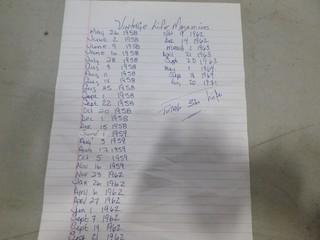 Vintage Life Magazines
May 26 1958
June 2 1958
June 9 1958
June 16 1958
July 28 1958
Aug 4 1958
Aug 11 1958
Aug 18 1958
Aug 25 1958
Sept 1 1958
Sept 22 1958
Oct 20 1958
Dec 1 1958
Dec 15 1958
June 1 1959
Aug 3 1959
Aug 17 1959
Oct 5 1959
Nov 16 1959
Nov 23 1962
Jan 26 1962
April 6 1962
April 27 1962
Jun 1 1962
Sept 7 1962
Sept 14 1962
Sept 21 1962
Nov 9 1962
Dec 14 1962
March 1 1963
April 21 1963
Sept 20 1963
May 1 1964